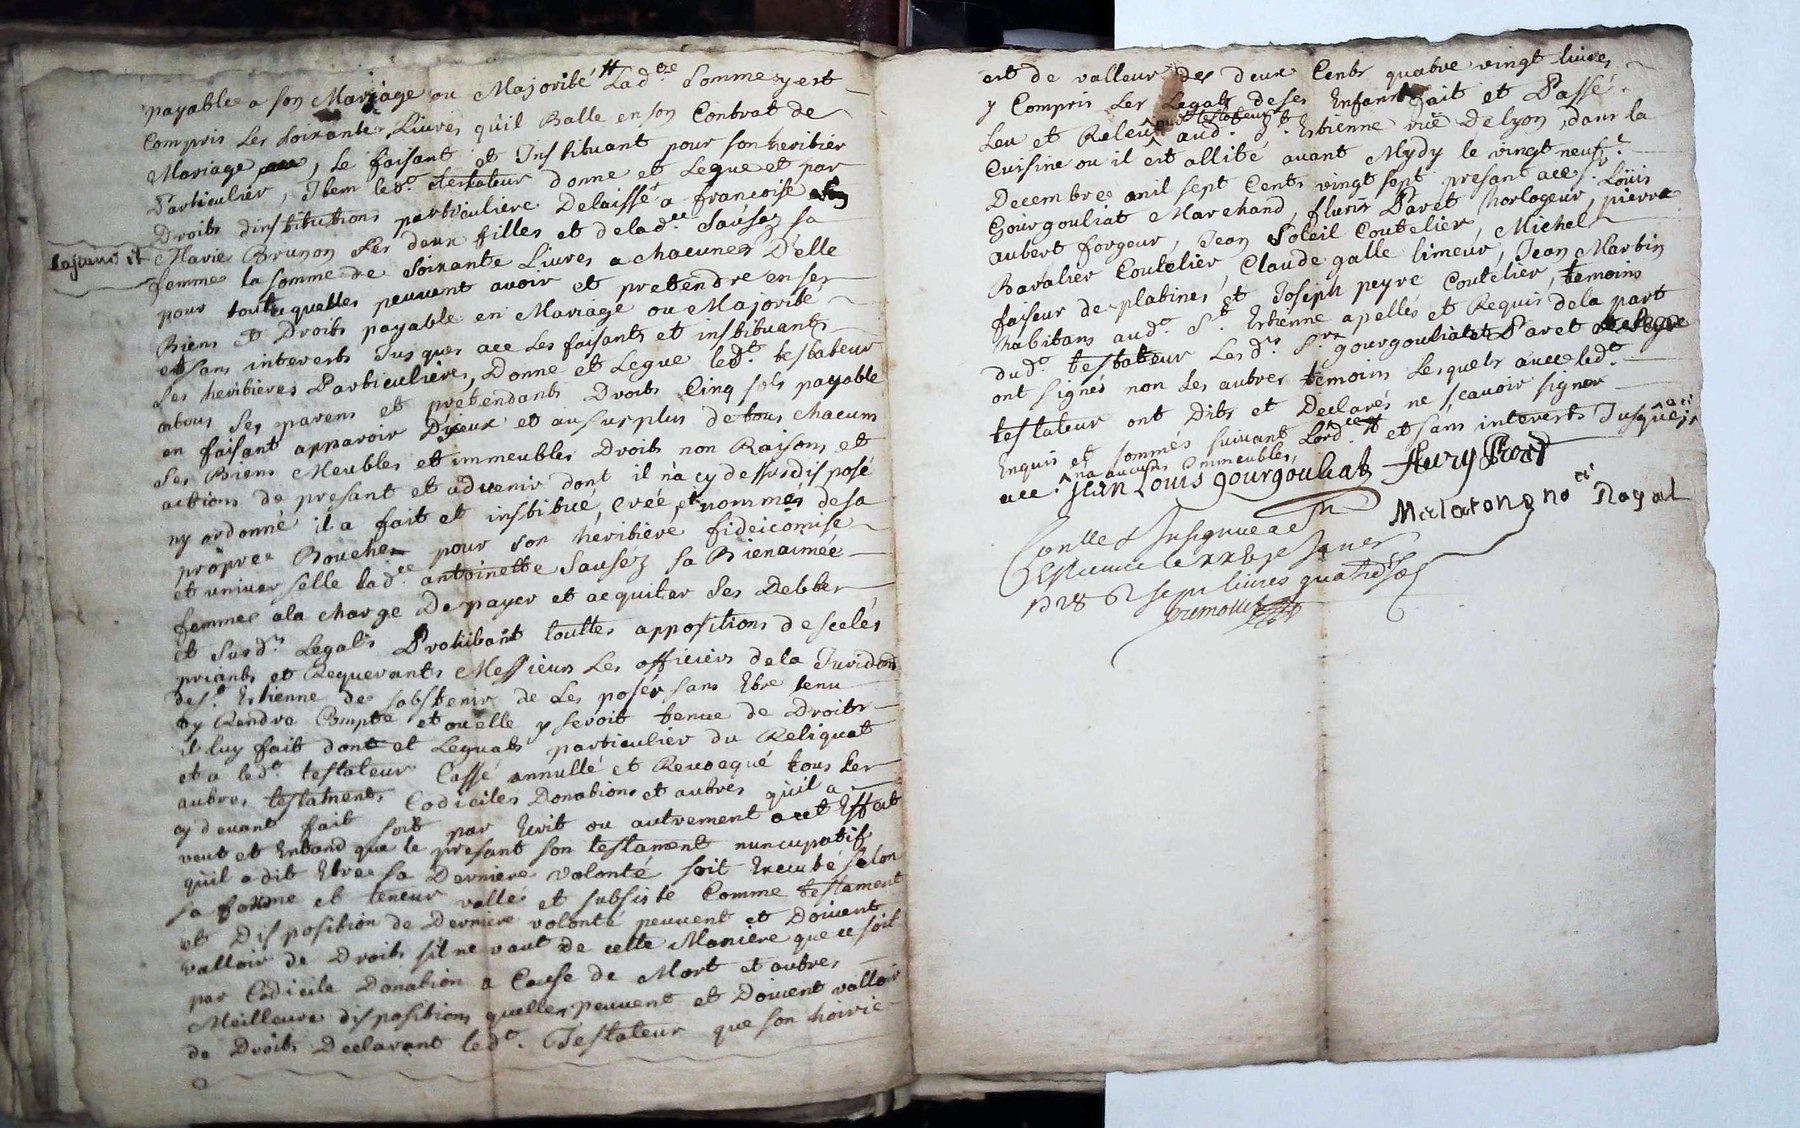 payable a son Mariage ou Majorité # Lad.te Somme y est
Compris Les soixante Livres qu'il Balle en son Contrat de
Mariage, Le faisant et Instituant pour son heritier
Particulier, Item led.t testateur donne et Legue et par
Droits d'institutions particuliere Delaisse a francoise
Marie Brunon ses deux filles et de lad.te Sauzez sa
femme la somme de Soixante Livres a chacunes D'elle
pour tout quelles peuvent avoir et pretendre en ses
Biens et Droits payable en Mariage ou Majorité
et sans interests Jusques a ce Les faisants et instituants
Ses heritieres Particulieres, Donne et Legue led.t testateur
atous ses parens et pretendants Droits Cinq sols payable
en faisant apparoir Diceux et au surplus de tous chacuns
Ses Biens Meubles et immeubles Droits non Raisons et
actions de presant et advenir dont il n'a cy dessus disposé
ny ordonné il a fait et institué, Créé, et nommés de sa
propre Bouche pour son heritiere fideicomise
et universelle lad.te antoinette Sausez sa Bienaimée
femme a la charge De payer et acquiter ses Debtes
et susd.ts Legats Prohibant touttes appositions de scelés
priants et Requerants Messieurs Les officiers de la
de S.t Estienne de sabstenir de Les poser sans Etre tenu
dy Rendre Compte et ou elle y seroit tenue de Droits
il luy fait dont et Leguats particulier du Reliquat
et a led.t testateur Cassé annullé et Revocqué tous les
autres testaments Codiciles Donations et autres qu'il a
cy devant fait soit par Ecrit ou autrement a cet Effet
veut et Entand que le presant son testament nuncupatif
qu'il a dit Etre sa Derniere volonté soit Executé selon
sa forme et teneur vallé et subsiste Comme testament
et Disposition de Derniere volonté peuvent et Doivent
valloir de Droits sil ne vaut de cette Maniere que ce soit
par Codicile Donation a Cause de Mort et autres
Meilleure dispositions quelles peuvent et Doivent valloir
de Droits Declarant led.t Testateur que son hoirie
est de valleur des deux Cents quatre vingt livres
y Compris Les Legats de ses Enfants fait et Passé
Leu et Releu aud.t testateur aud.t S.t Estienne rue Delyon dans la
Cuisine ou il est allité avant Mydy le vingt neuf.e
Decembre mil sept Cents vingt sept presant a ce s.r Louis
Gourgouliat Marchand, fleury Paret horlogeur, pierre
aubert forgeur, Jean Soleil Coutelier, Michel
Bavalier Coutelier, Claude galle limeur, Jean Martin
faiseur de platines, et Joseph peyre Coutelier, temoins
habitans aud.t S.t Estienne apellés et Requis de la part
dud.t testateur Lesd.ts S.rs gourgouliat et Paret
ont signés non Les autres temoins Lesquels avec led.t
testateur ont Dits et Declarés ne scavoir signer
Enquis et sommés suivant Lord.ce # et sans interests Jusques a
ce. n'a aucuns Immeubles.
Jean Louis gourgouliat fleury Paret
no.re Royal